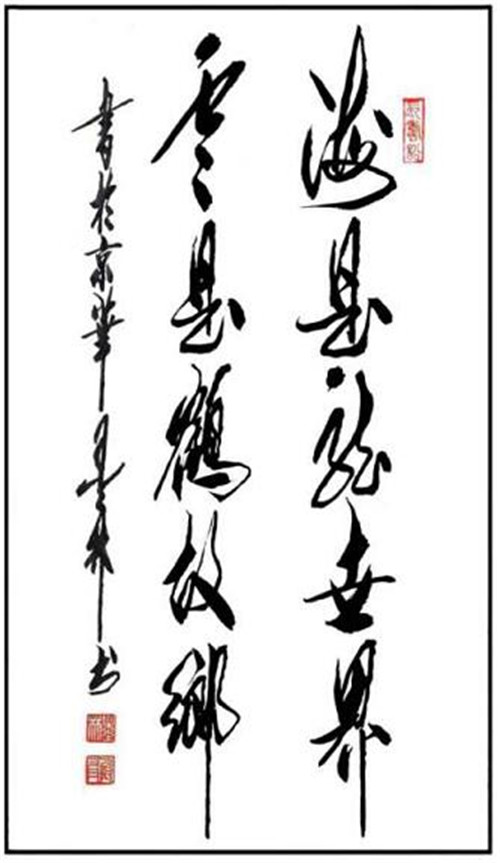 海是龙世界
云是鹤故乡
书于京华 书